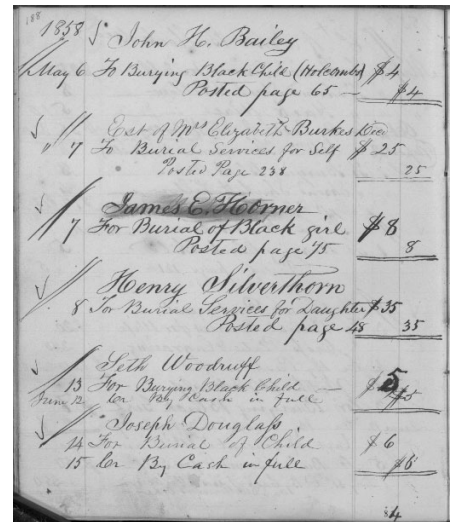 188
1858
John H. Bailey
May 6 To Burying Black Child (Holcombs) $4
Posted page 65 — $4
Est of Mrs Elizabeth Burkes Decd
" 7 To Burial Services for Self $25
Posted Page 238 25
James E. Horner
7 For Burial of Black girl $8
Posted page 75 8
Henry Silverthorn
8 For Burial Services for Daughter $35
Posted page 48 35
Seth Woodruff
13 For Burying Black Child — $5
June 12 Cr By Cash in full $5
Joseph Douglass
14 For Burial of Child $6
15 Cr By Cash in full $6